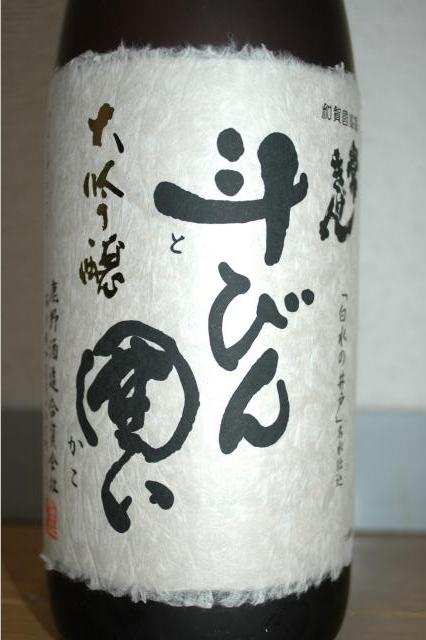 加賀國
常きげん
「白水の井戸」名水仕込
斗びん
と
圍い
かこ
大吟醸
鹿野酒造合資会社